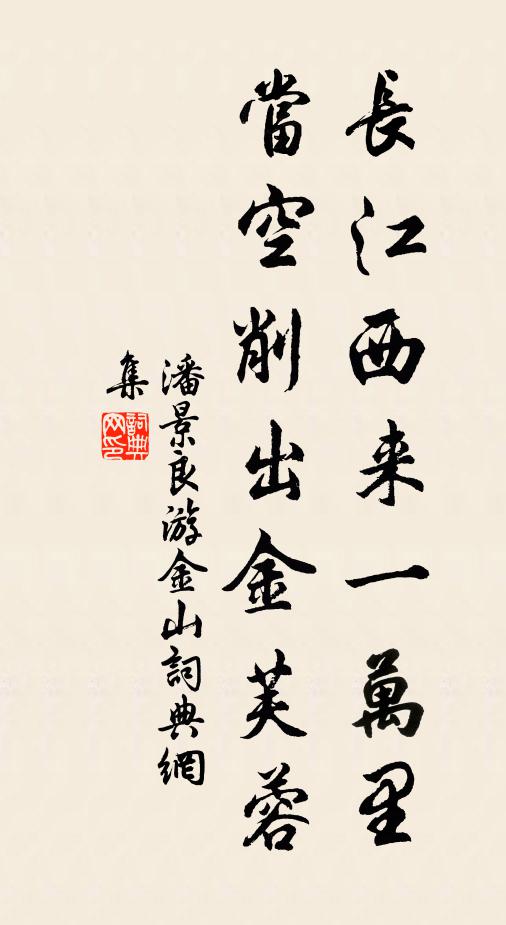 長江西来一萬里
當空削出金芙蓉
潘景良游金山詞典網
集
詞典網印